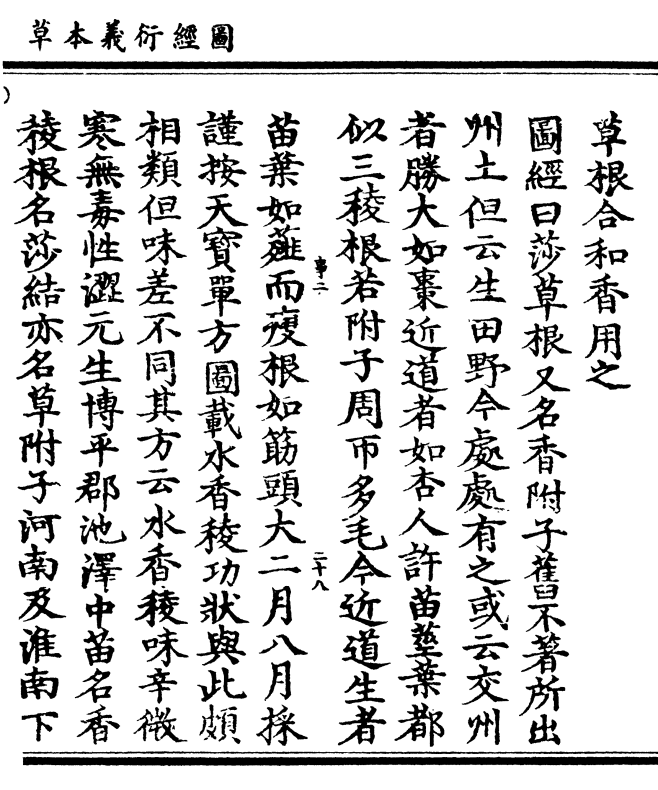 圖經衍義本草
草根合和香用之
圖經曰莎草根又名香附子舊不著所出
州土但云生田野今處處有之或云交州
者勝大如棗近道者如杏人許苗莖葉都
似三稜根若附子周帀多毛今近道生者
苗葉如薤而瘦根如筯頭大二月八月採
事二
二十八
謹按天寶單方圖載水香稜功狀與此頗
相類但味差不同其方云水香稜味辛微
寒無毒性澀元生博平郡池澤中苗名香
稜根名莎結亦名草附子河南及淮南下